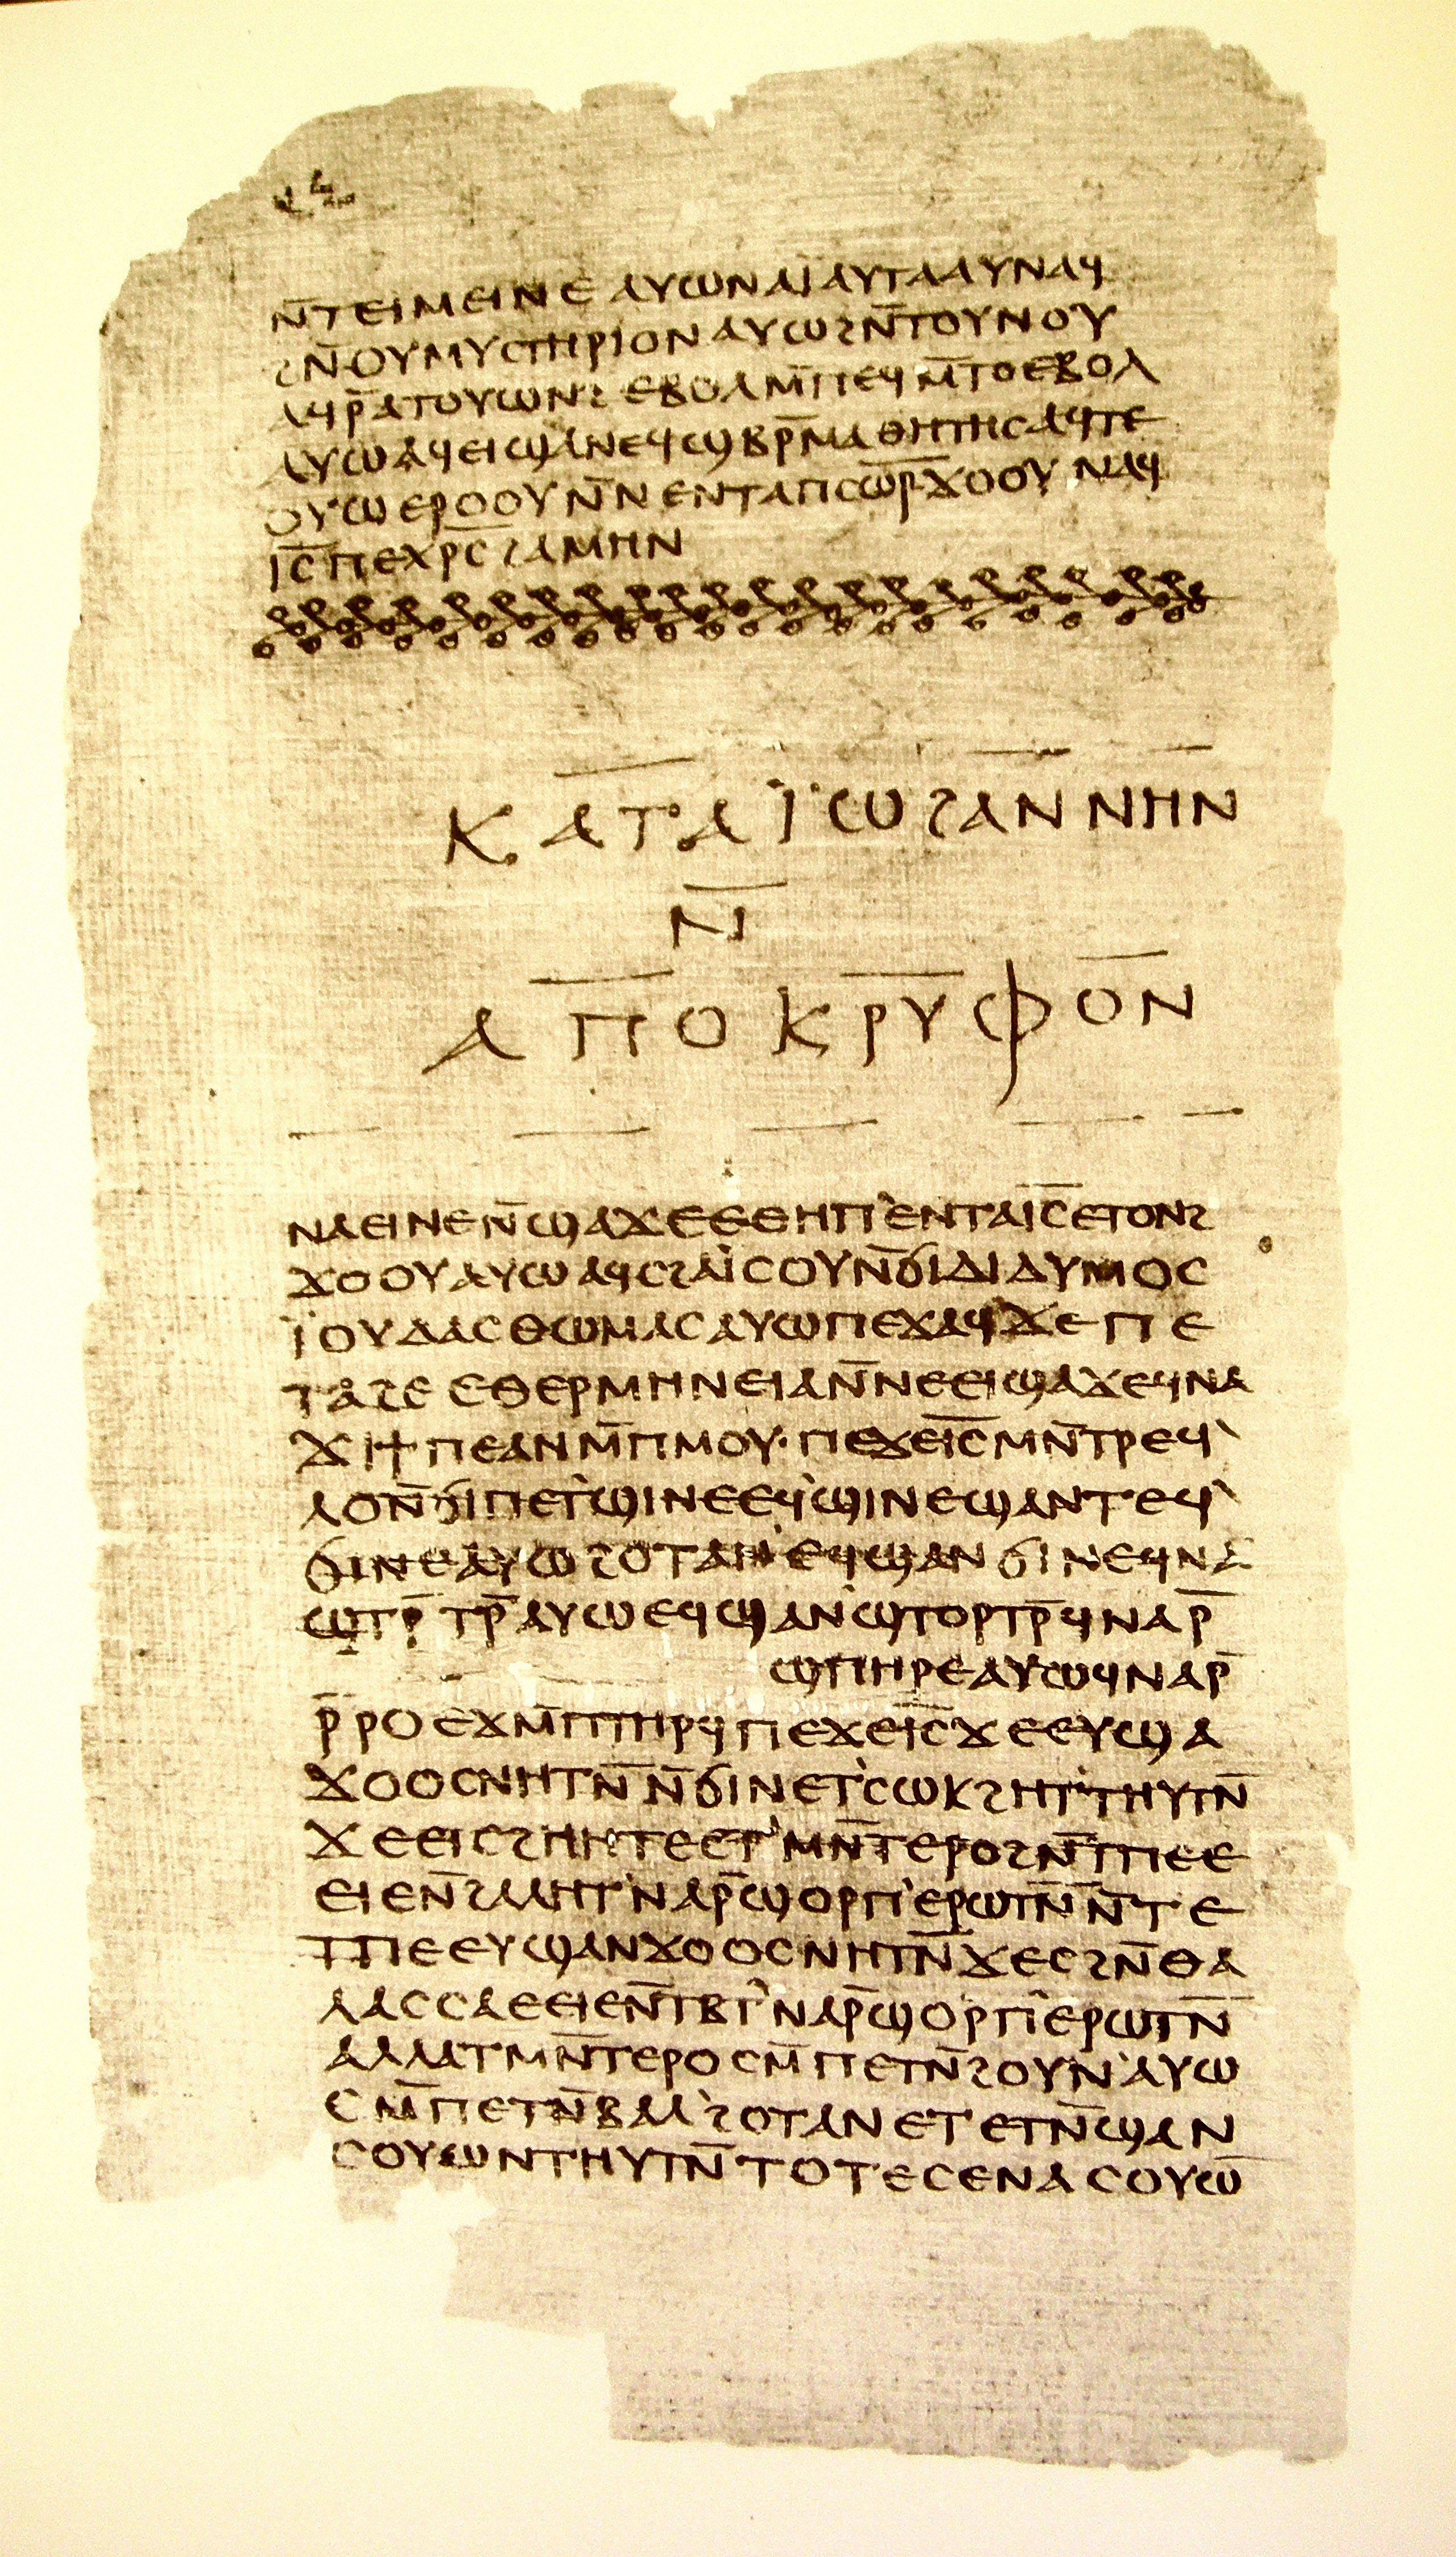 ⲗⲃ
ⲛ̄ⲧⲉⲓⲙⲉⲓⲛⲉ ⲁⲩⲱ ⲛⲁⲓ̈ ⲁⲩⲧⲁⲁⲩ ⲛⲁϥ
ϩⲛ̄ ⲟⲩⲙⲩⲥⲧⲏⲣⲓⲟⲛ ⲁⲩⲱ ϩⲛ̄ ⲧⲟⲩⲛⲟⲩ
ⲁϥⲣ̄ ⲁⲧⲟⲩⲱⲛϩ ⲉⲃⲟⲗ ⲙ̄ⲡⲉϥⲙ̄ⲧⲟ ⲉⲃⲟⲗ
ⲁⲩⲱ ⲁϥⲉⲓ ϣⲁ ⲛⲉϥϣⲃⲣ̄ⲙⲁⲑⲏⲧⲏⲥ ⲁϥⲧⲉ
ⲟⲩⲱ ⲉⲣⲟⲟⲩ ⲛ̄ⲛⲉⲛⲧⲁ ⲡⲥⲱ̄ⲣ̄ ϫⲟⲟⲩ ⲛⲁϥ
ⲓ̄ⲥ̄ ⲡⲉⲭⲣ̄ⲥ̄ ϩⲁⲙⲏⲛ
ⲕⲁⲧⲁ ⲓ̈ⲱϩⲁⲛⲛⲏⲛ
ⲛ̄
ⲁⲡⲟⲕⲣⲩⲫⲟⲛ
ⲛⲁⲉⲓ ⲛⲉ ⲛ̄ϣⲁϫⲉ ⲉⲑⲏⲡ ⲉⲛⲧⲁ ⲓ̄ⲥ̄ ⲉⲧⲟⲛϩ
ϫⲟⲟⲩ ⲁⲩⲱ ⲁϥⲥϩⲁⲓ̈ⲥⲟⲩ ⲛ̄ϭⲓ ⲇⲓⲇⲩⲙⲟⲥ
ⲓ̈ⲟⲩⲇⲁⲥ ⲑⲱⲙⲁⲥ ⲁⲩⲱ ⲡⲉϫⲁϥ ϫⲉ ⲡⲉ
ⲧⲁϩⲉ ⲉⲑⲉⲣⲙⲏⲛⲉⲓⲁ ⲛ̄ⲛⲉⲉⲓϣⲁϫⲉ ϥⲛⲁ
ϫⲓ ϯⲡⲉ ⲁⲛ ⲙ̄ⲡⲙⲟⲩ · ⲡⲉϫⲉ ⲓ̄ⲥ̄ ⲙⲛ̄ⲧⲣⲉϥ
ⲗⲟ ⲛ̄ϭⲓ ⲡⲉⲧϣⲓⲛⲉ ⲉϥϣⲓⲛⲉ ϣⲁⲛⲧⲉϥ
ϭⲓⲛⲉ ⲁⲩⲱ ϩⲟⲧⲁⲛ ⲉϥϣⲁⲛϭⲓⲛⲉ ϥⲛⲁ
ϣⲧⲣ̄ⲧⲣ̄ ⲁⲩⲱ ⲉϥϣⲁⲛϣⲧⲟⲣⲧⲣ̄ ϥⲛⲁⲣ̄
ϣⲡⲏⲣⲉ ⲁⲩⲱ ϥⲛⲁⲣ̄
ⲣ̄ⲣⲟ ⲉϫⲙ̄ ⲡⲧⲏⲣϥ ⲡⲉϫⲉ ⲓ̄ⲥ̄ ϫⲉ ⲉⲩϣⲁ
ϫⲟⲟⲥ ⲛⲏⲧⲛ̄ ⲛ̄ϭⲓ ⲛⲉⲧⲥⲱⲕ ϩⲏⲧ ⲧⲏⲩⲧⲛ̄
ϫⲉ ⲉⲓⲥϩⲏⲏⲧⲉ ⲉⲧⲙⲛ̄ⲧⲉⲣⲟ ϩⲛ̄ ⲧⲡⲉ ⲉ
ⲉⲓⲉ ⲛ̄ϩⲁⲗⲏⲧ ⲛⲁⲣ̄ ϣⲟⲣⲡ ⲉⲣⲱⲧⲛ̄ ⲛ̄ⲧⲉ
ⲧⲡⲉ ⲉⲩϣⲁⲛϫⲟⲟⲥ ⲛⲏⲧⲛ̄ ϫⲉ ⲥϩⲛ̄ ⲑⲁ
ⲗⲁⲥⲥⲁ ⲉⲉⲓⲉ ⲛ̄ⲧⲃⲧ ⲛⲁⲣ̄ ϣⲟⲣⲡ ⲉⲣⲱⲧⲛ̄
ⲁⲗⲗⲁ ⲧⲙⲛ̄ⲧⲉⲣⲟ ⲥⲙ̄ⲡⲉⲧⲛ̄ϩⲟⲩⲛ ⲁⲩⲱ
ⲥⲙ̄ⲡⲉⲧⲛ̄ⲃⲁⲗ ϩⲟⲧⲁⲛ ⲉⲧⲉⲧⲛ̄ϣⲁⲛ
ⲥⲟⲩⲱⲛ ⲧⲏⲩⲧⲛ̄ ⲧⲟⲧⲉ ⲥⲉⲛⲁⲥⲟⲩⲱ̄